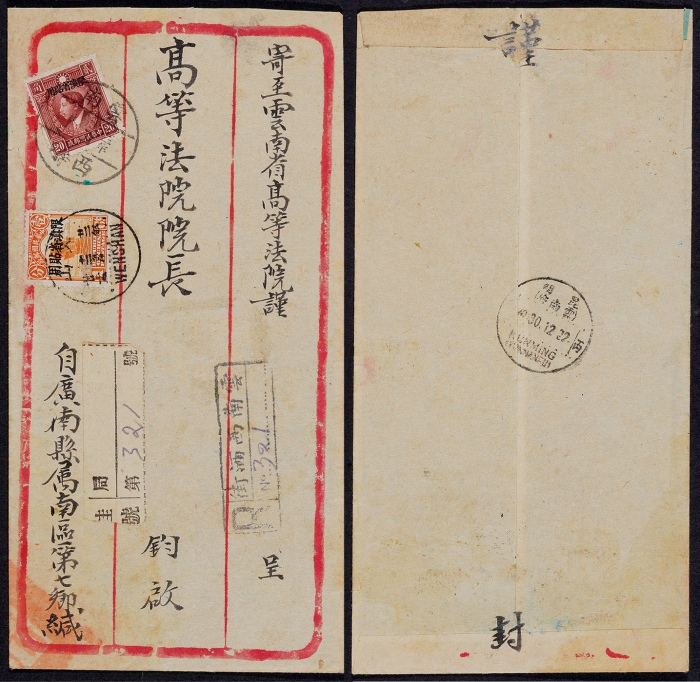 寄至雲南省高等法院謹
呈
高等法院院長
鈞啟
自廣南縣屬南區第七鄉緘
限滇省貼用
20
限滇省貼用
WENSHAN
雲南西洒街
R
No. 321
第 321 號
局
主
號
謹
封
昆明
雲南府
30.12.22.
丙
KUNMING